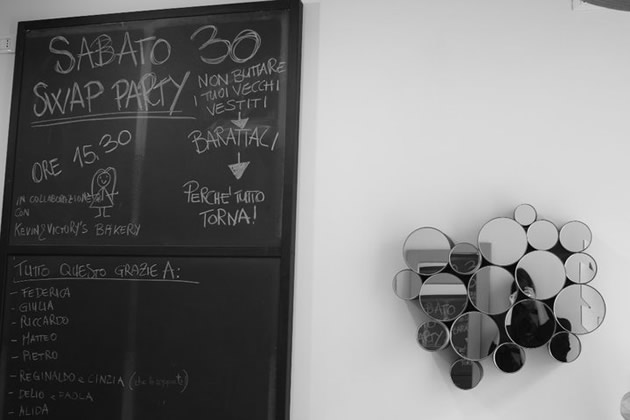 SABATO 30
SWAP PARTY
ORE 15.30
IN COLLABORAZIONE
CON
KEVIN & VICTORY'S BAKERY
NON BUTTARE
I TUOI VECCHI
VESTITI
BARATTALI
PERCHE' TUTTO
TORNA!
TUTTO QUESTO GRAZIE A:
- FEDERICA
- GIULIA
- RICCARDO
- MATTEO
- PIETRO
- REGINALDO e CINZIA
- DELIO e PAOLA
- ALIDA